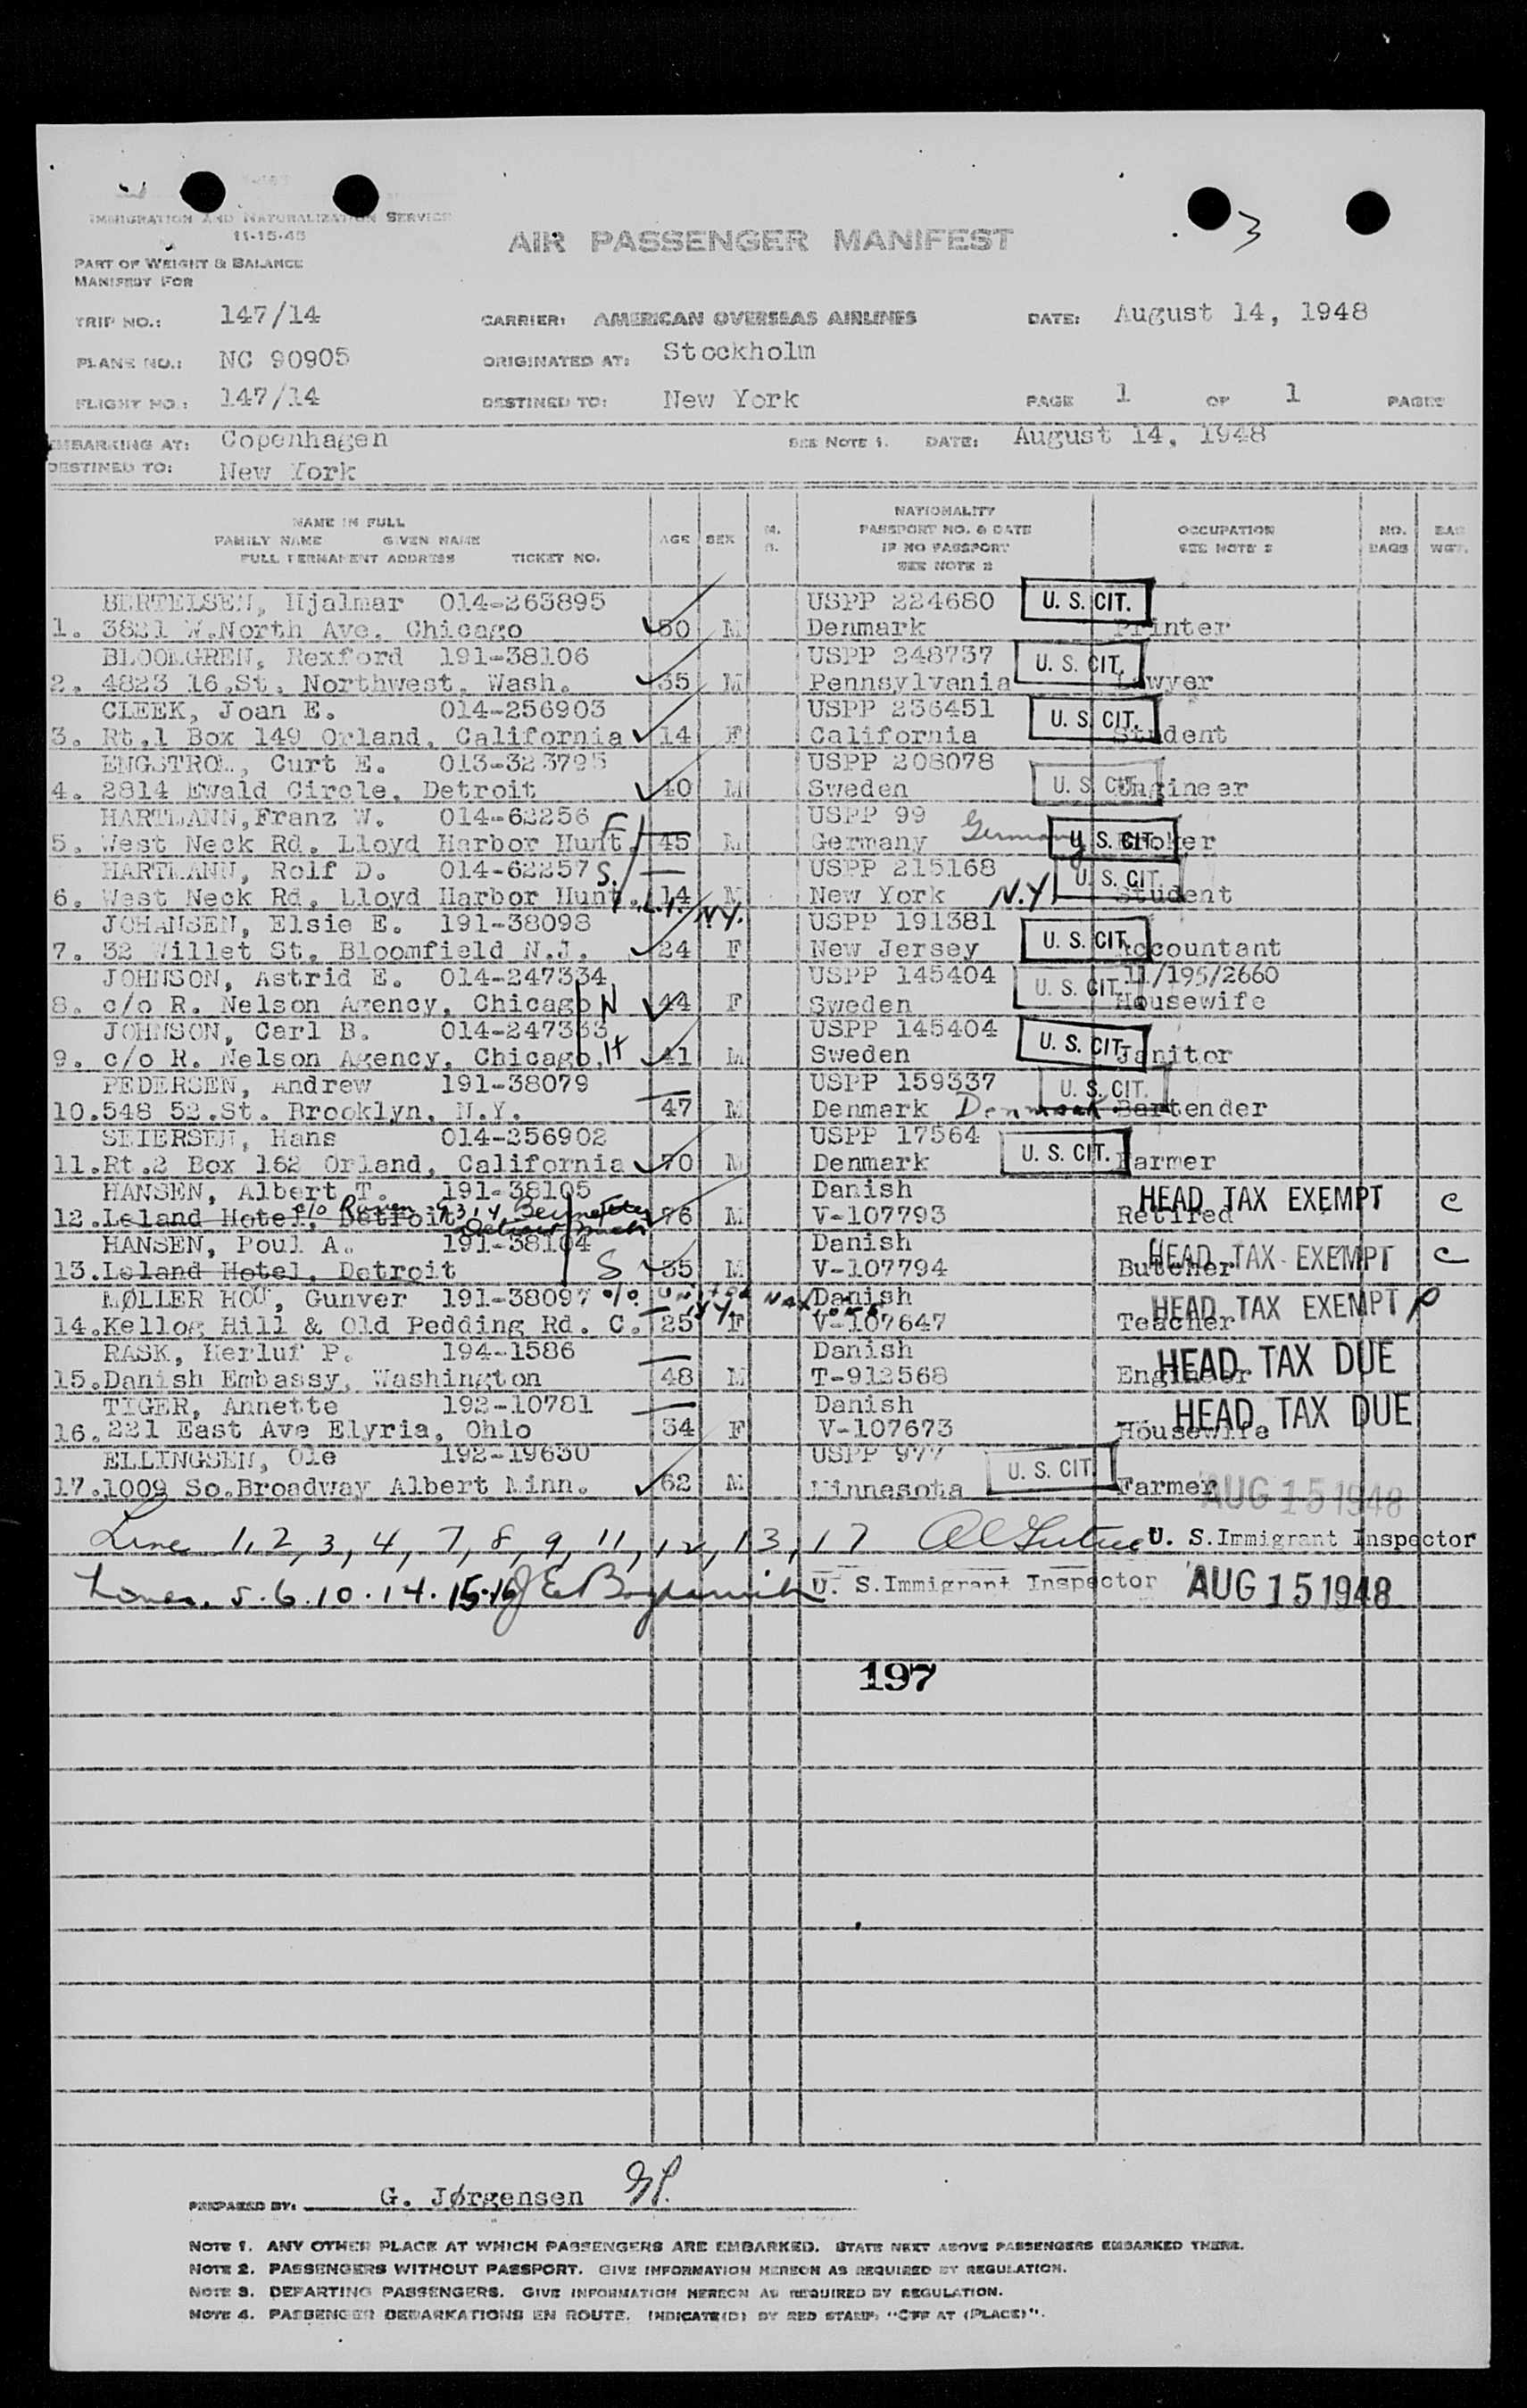 3
IMMIGRATION AND NATURALIZATION SERVICE
11-15-45
AIR PASSENGER MANIFEST
PART OF WEIGHT & BALANCE
MANIFEST FOR
TRIP NO.: 147/14 CARRIER: AMERICAN OVERSEAS AIRLINES DATE: August 14, 1948
PLANE NO.: NC 90905 ORIGINATED AT: Stockholm
FLIGHT NO.: 147/14 DESTINED TO: New York PAGE 1 OF 1 PAGES
EMBARKING AT: Copenhagen SEE NOTE 1. DATE: August 14, 1948
DESTINED TO: New York
NAME IN FULL
FAMILY NAME GIVEN NAME
FULL PERMANENT ADDRESS TICKET NO.
AGE SEX
NATIONALITY
PASSPORT NO. & DATE
IF NO PASSPORT
SEE NOTE 2
OCCUPATION
SEE NOTE 2
NO.
BAGS
BAG
WGT.
BERTELSEN, Hjalmar 014-263895 USPP 224680 U. S. CIT.
1. 3821 W.North Ave. Chicago 50 M Denmark Printer
BLOOMGREN, Rexford 191-38106 USPP 248737 U. S. CIT.
2. 4823 16.St. Northwest. Wash. 35 M Pennsylvania Lawyer
CLEEK, Joan E. 014-256903 USPP 236451 U. S. CIT.
3. Rt.1 Box 149 Orland, California 14 F California Student
ENGSTROM, Curt E. 013-323795 USPP 208078 U. S. CIT.
4. 2814 Ewald Circle, Detroit 40 M Sweden Engineer
HARTMANN,Franz W. 014-62256 F USPP 99 Germany U. S. CIT.
5. West Neck Rd. Lloyd Harbor Hunt. 45 M Germany Broker
HARTMANN, Rolf D. 014-62257 S. USPP 215168 U. S. CIT.
6. West Neck Rd. Lloyd Harbor Hunt. L.I. N.Y. 14 M New York N.Y. Student
JOHANSEN, Elsie E. 191-38098 USPP 191381 U. S. CIT.
7. 32 Willet St. Bloomfield N.J. 24 F New Jersey Accountant
JOHNSON, Astrid E. 014-247334 USPP 145404 U. S. CIT. 11/195/2660
8. c/o R. Nelson Agency, Chicago 44 F Sweden Housewife
JOHNSON, Carl B. 014-247333 USPP 145404 U. S. CIT.
9. c/o R. Nelson Agency, Chicago. 41 M Sweden Janitor
PEDERSEN, Andrew 191-38079 USPP 159337 U. S. CIT.
10.548 52.St. Brooklyn, N.Y. 47 M Denmark Denmark Bartender
SEIERSEN, Hans 014-256902 USPP 17564 U. S. CIT.
11.Rt.2 Box 162 Orland, California 70 M Denmark Farmer
HANSEN, Albert T. 191-38105 Danish HEAD TAX EXEMPT C
12.Leland Hotel, Detroit c/o 76 M V-107793 Retired
HANSEN, Poul A. 191-38104 Danish HEAD TAX EXEMPT C
13.Leland Hotel, Detroit S 35 M V-107794 Butcher
MØLLER HOU, Gunver 191-38097 c/o United Nations Danish HEAD TAX EXEMPT P
14.Kellog Hill & Old Pedding Rd. C. N.Y. 25 F V-107647 Teacher
RASK, Herluf P. 194-1586 Danish HEAD TAX DUE
15.Danish Embassy, Washington 48 M T-912568 Engineer
TIGER, Annette 192-10781 Danish HEAD TAX DUE
16.221 East Ave Elyria, Ohio 34 F V-107673 Housewife
ELLINGSEN, Ole 192-19630 USPP 977 U. S. CIT.
17.1009 So.Broadway Albert Minn. 62 M Minnesota Farmer AUG 15 1948
Line 1, 2, 3, 4, 7, 8, 9, 11, 12, 13, 17 U. S.Immigrant Inspector
Lines. 5. 6. 10. 14. 15. 16 U. S.Immigrant Inspector AUG 15 1948
197
PREPARED BY: G. Jørgensen
NOTE 1. ANY OTHER PLACE AT WHICH PASSENGERS ARE EMBARKED. STATE NEXT ABOVE PASSENGERS EMBARKED THERE.
NOTE 2. PASSENGERS WITHOUT PASSPORT. GIVE INFORMATION HEREON AS REQUIRED BY REGULATION.
NOTE 3. DEPARTING PASSENGERS. GIVE INFORMATION HEREON AS REQUIRED BY REGULATION.
NOTE 4. PASSENGER DEBARKATIONS EN ROUTE. INDICATE(D) BY RED STAMP, "OFF AT (PLACE)".